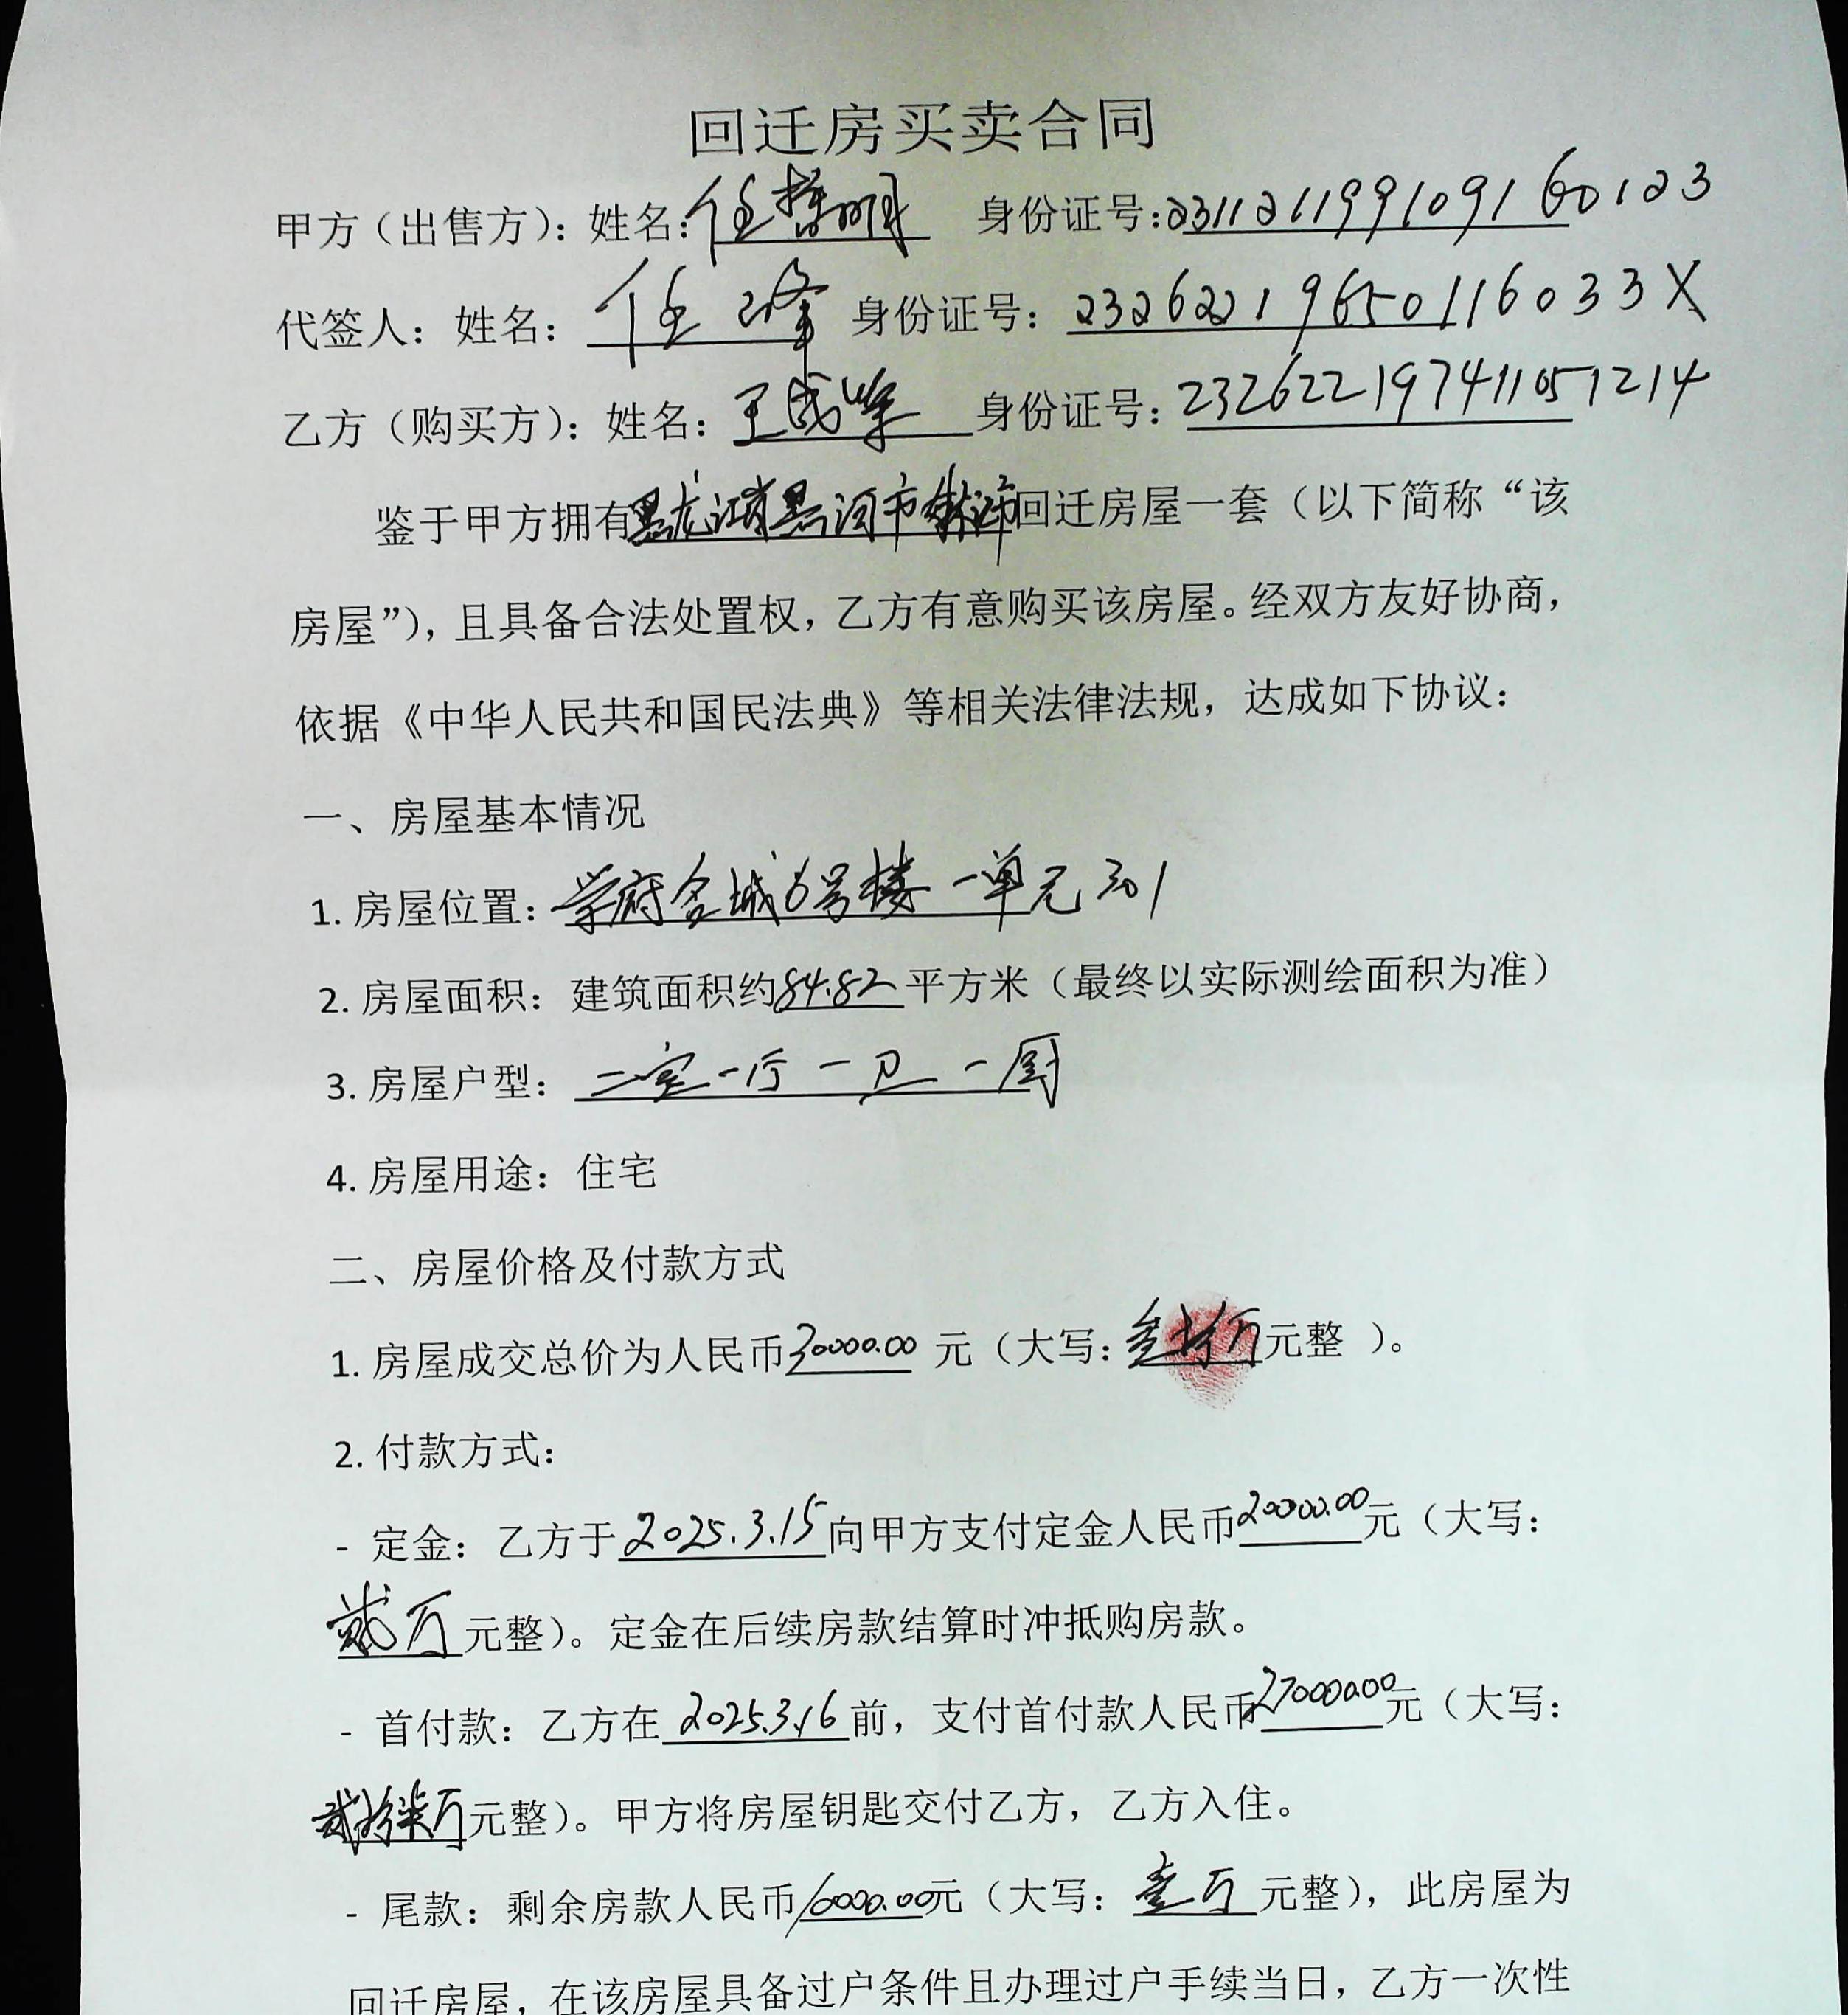 回迁房买卖合同
甲方（出售方）：姓名：任哲明 身份证号：231121199109160123
代签人：姓名：任峰 身份证号：23262219650116033X
乙方（购买方）：姓名：王成军 身份证号：232622197411051214
鉴于甲方拥有黑龙江省黑河市 回迁房屋一套（以下简称“该
房屋”），且具备合法处置权，乙方有意购买该房屋。经双方友好协商，
依据《中华人民共和国民法典》等相关法律法规，达成如下协议：
一、房屋基本情况
1. 房屋位置：学府名城6号楼一单元301
2. 房屋面积：建筑面积约84.82平方米（最终以实际测绘面积为准）
3. 房屋户型：二室一厅一卫一厨
4. 房屋用途：住宅
二、房屋价格及付款方式
1. 房屋成交总价为人民币30000.00 元（大写：叁拾万元整 ）。
2. 付款方式：
- 定金：乙方于2025.3.15向甲方支付定金人民币20000.00元（大写：
贰万元整）。定金在后续房款结算时冲抵购房款。
- 首付款：乙方在2025.3.16前，支付首付款人民币270000.00元（大写：
贰拾柒万元整）。甲方将房屋钥匙交付乙方，乙方入住。
- 尾款：剩余房款人民币10000.00元（大写：壹万元整），此房屋为
回迁房屋，在该房屋具备过户条件且办理过户手续当日，乙方一次性